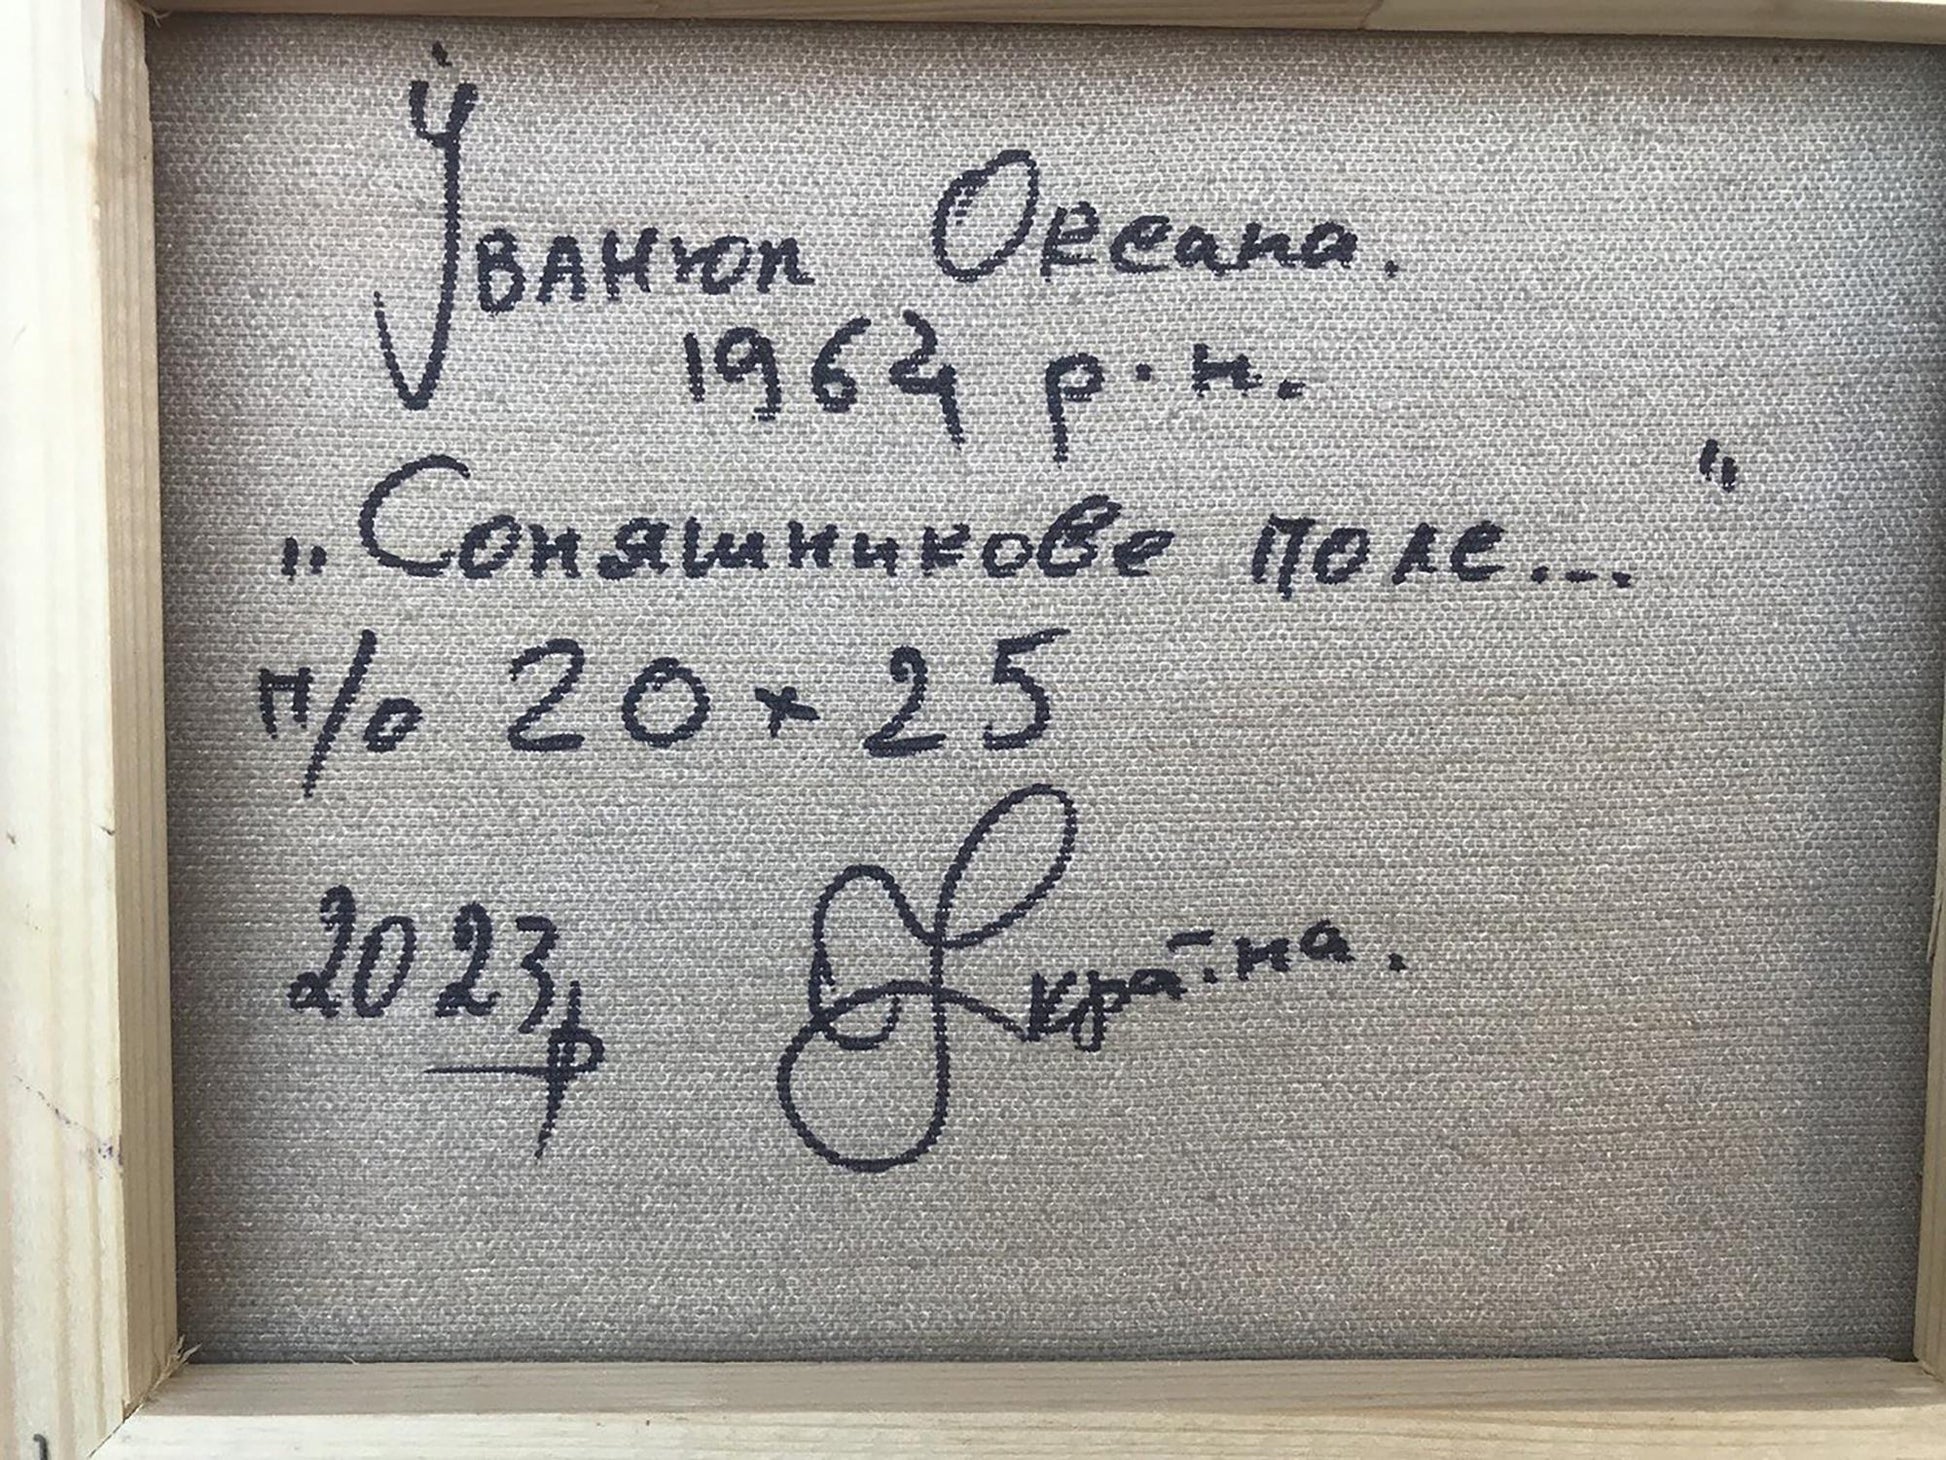 Іванюк Оксана.
1964 р.н.
„Соняшникове поле..."
п/о 20×25
2023р Україна.